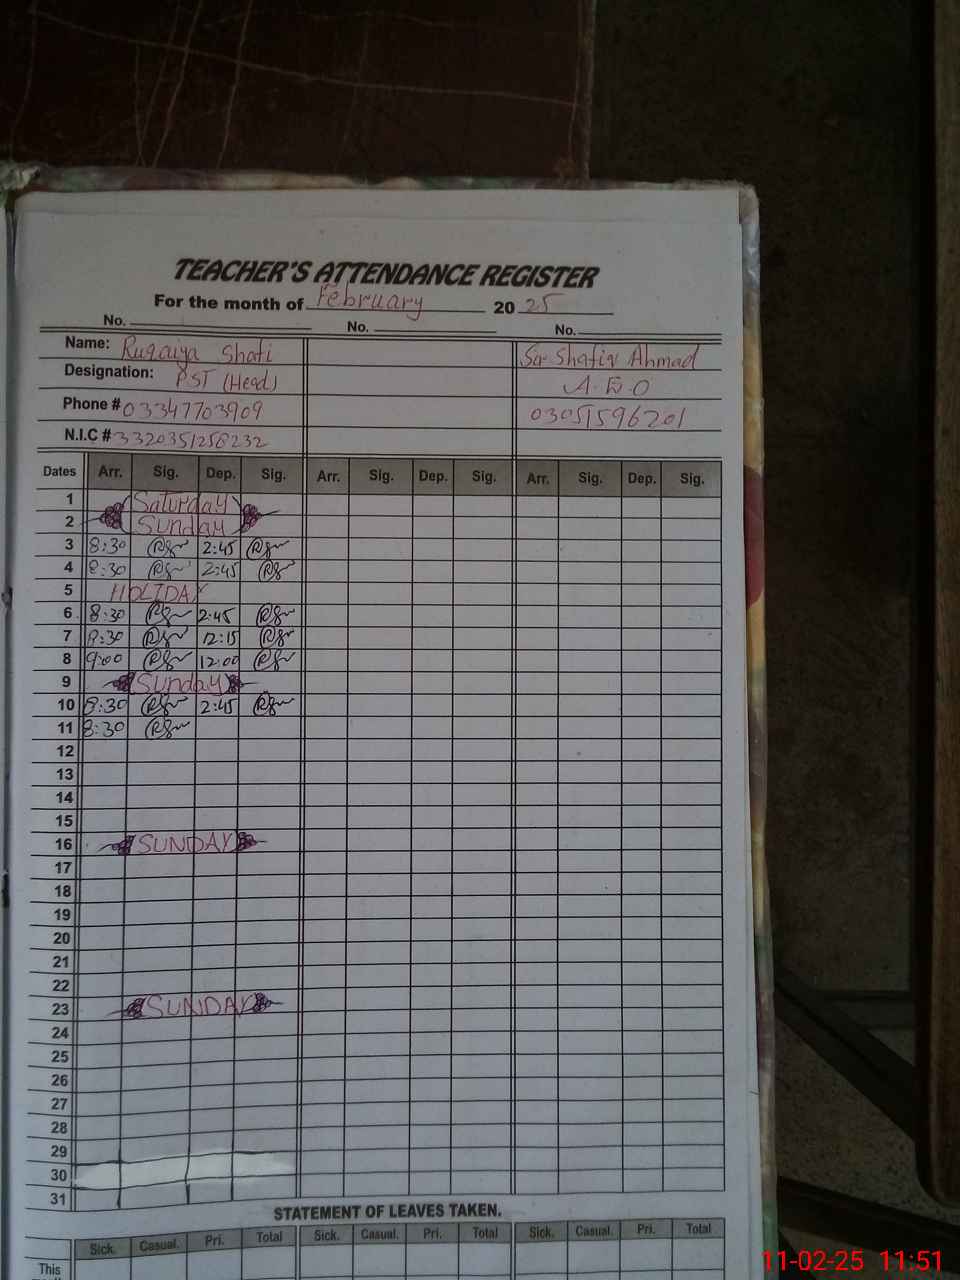 TEACHER'S ATTENDANCE REGISTER
For the month of February 2025
No. No. No.
Name: Ruqaiya Shafi Sir Shafiq Ahmad
Designation: PST (Head) A.E.O
Phone # 03347703909 03051596201
N.I.C # 3320351258232
Dates Arr. Sig. Dep. Sig. Arr. Sig. Dep. Sig. Arr. Sig. Dep. Sig.
1 Saturday
2 Sunday
3 8:30 2:45
4 8:30 2:45
5 HOLIDAY
6 8:30 2:45
7 8:30 12:15
8 9:00 12:00
9 Sunday
10 8:30 2:45
11 8:30
12
13
14
15
16 SUNDAY
17
18
19
20
21
22
23 SUNDAY
24
25
26
27
28
29
30
31
STATEMENT OF LEAVES TAKEN.
Sick. Casual. Pri. Total Sick. Casual. Pri. Total Sick. Casual. Pri. Total
This
11-02-25 11:51